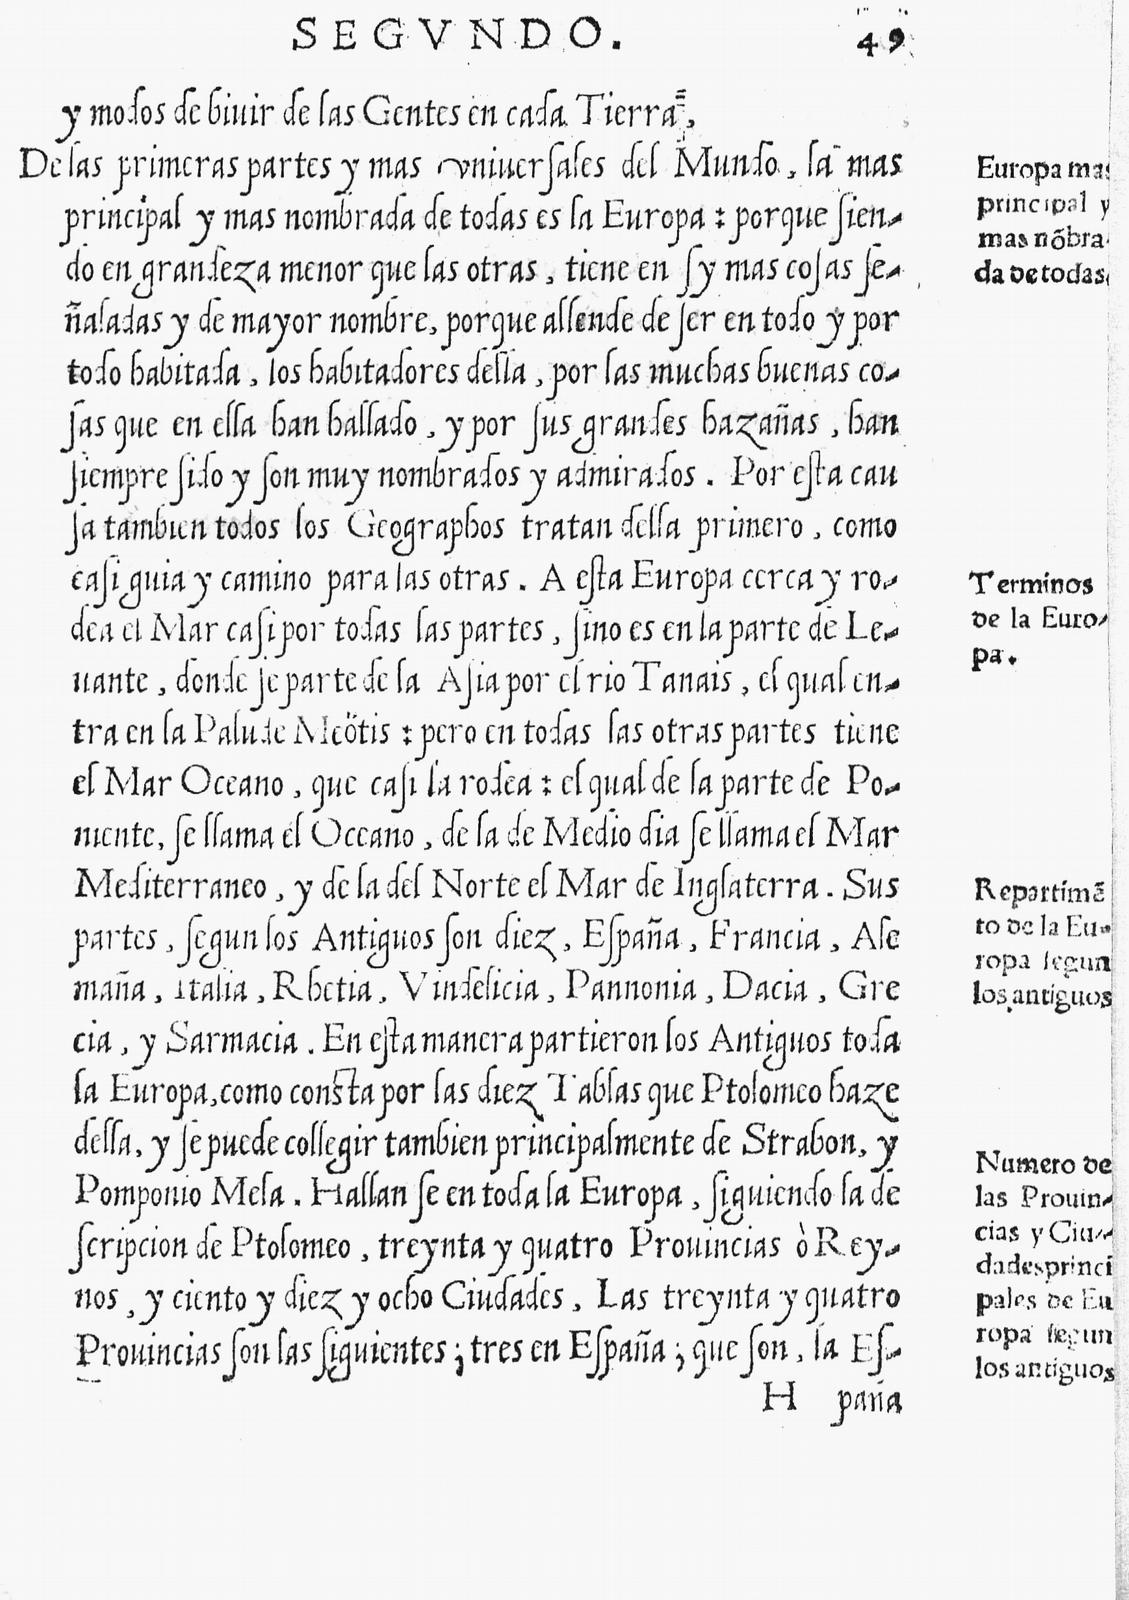 SEGVNDO.
49
y modos de biuir de las Gentes en cada Tierra,
De las primeras partes y mas vniuersales del Mundo, la mas
principal y mas nombrada de todas es la Europa : porque sien-
do en grandeza menor que las otras, tiene en sy mas cosas se-
ñaladas y de mayor nombre, porque allende de ser en todo y por
todo habitada, los habitadores della, por las muchas buenas co-
sas que en ella han hallado, y por sus grandes hazañas, han
siempre sido y son muy nombrados y admirados. Por esta cau
sa tambien todos los Geographos tratan della primero, como
casi guia y camino para las otras. A esta Europa cerca y ro-
dea el Mar casi por todas las partes, sino es en la parte de Le-
uante, donde se parte de la Asia por el rio Tanais, el qual en-
tra en la Palude Meötis : pero en todas las otras partes tiene
el Mar Oceano, que casi la rodea : el qual de la parte de Po-
niente, se llama el Oceano, de la de Medio dia se llama el Mar
Mediterraneo, y de la del Norte el Mar de Inglaterra. Sus
partes, segun los Antiguos son diez, España, Francia, Ale
maña, Italia, Rhetia, Vindelicia, Pannonia, Dacia, Gre
cia, y Sarmacia. En esta manera partieron los Antiguos toda
la Europa, como consta por las diez Tablas que Ptolomeo haze
della, y se puede collegir tambien principalmente de Strabon, y
Pomponio Mela. Hallan se en toda la Europa, siguiendo la de
scripcion de Ptolomeo, treynta y quatro Prouincias ò Rey-
nos, y ciento y diez y ocho Ciudades, Las treynta y quatro
Prouincias son las siguientes ; tres en España ; que son, la Es-
H paña
Europa mas
principal y
mas nõbra
da de todas
Terminos
de la Euro-
pa.
Repartimẽ
to de la Eu-
ropa segun
los antiguos
Numero de
las Prouin-
cias y Ciu-
dades princi
pales de Eu
ropa segun
los antiguos